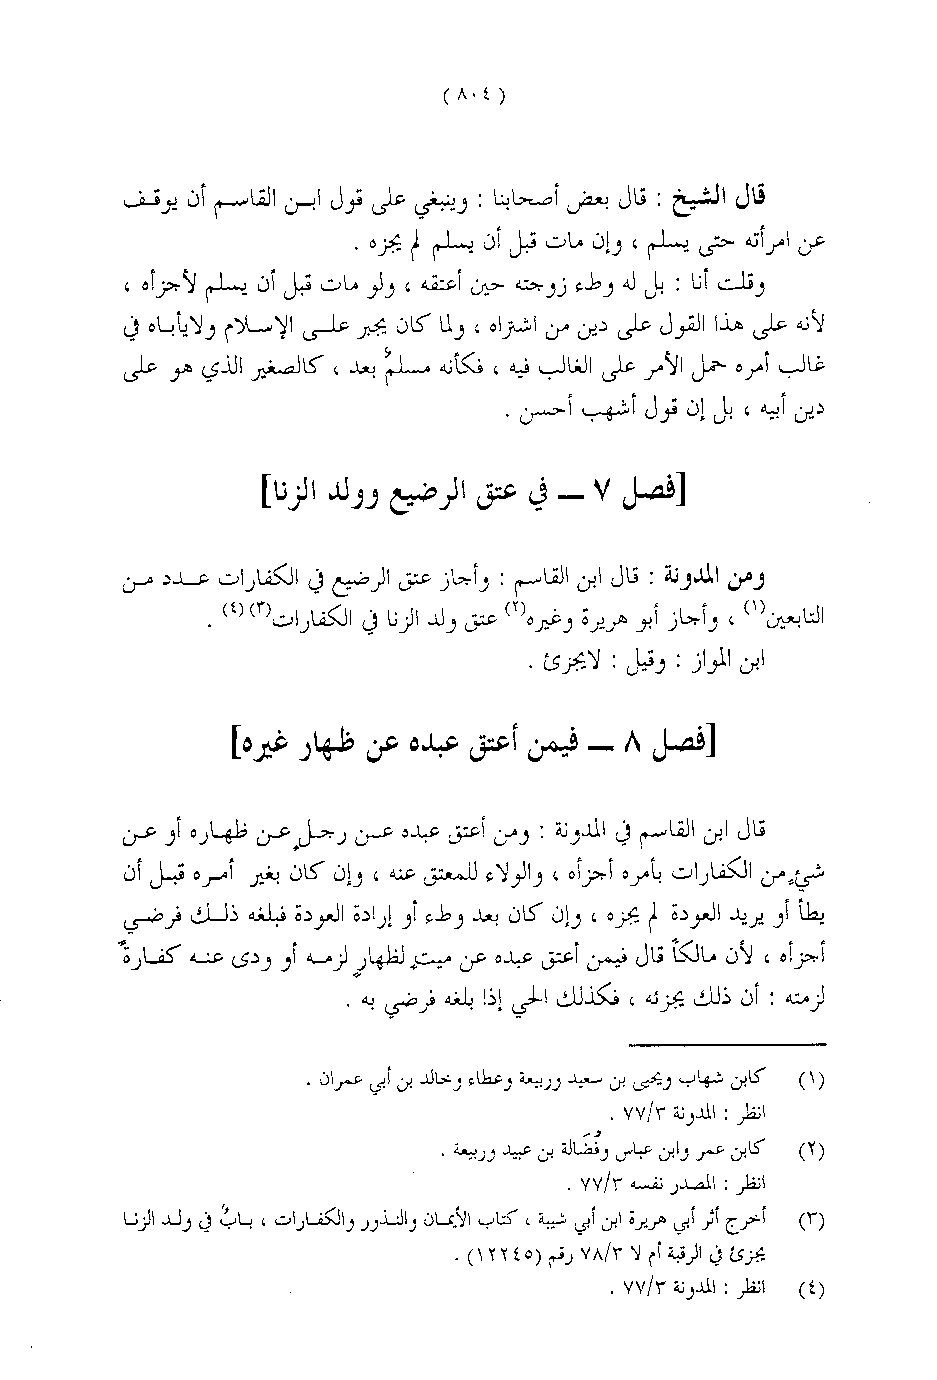 ( ٨٠٤ )
قال الشيخ : قال بعض أصحابنا : وينبغي على قول ابـن القاسـم أن يوقـف
عن امرأته حتى يسلم ، وإن مات قبل أن يسلم لم يجزه .
وقلت أنا : بل له وطء زوجته حين أعتقه ، ولو مات قبل أن يسلم لأجزأه ،
لأنه على هذا القول على دين من اشتراه ، ولما كان يجبر علـى الإسـلام ولايأبـاه في
غالب أمره حمل الأمر على الغالب فيه ، فكأنه مسلمٌ بعد ، كالصغير الذي هو على
دين أبيه ، بل إن قول أشهب أحسن .
[فصل ٧ ــ في عتق الرضيع وولد الزنا]
ومن المدونة : قال ابن القاسم : وأجاز عتق الرضيع في الكفارات عـدد مـن
التابعين(١) ، وأجاز أبو هريرة وغيره(٢) عتق ولد الزنا في الكفارات(٣)(٤) .
ابن المواز : وقيل : لايجزئ .
[فصل ٨ ــ فيمن أعتق عبده عن ظهار غيره]
قال ابن القاسم في المدونة : ومن أعتق عبده عـن رجـلٍ عـن ظهـاره أو عـن
شيءٍ من الكفارات بأمره أجزأه ، والولاء للمعتق عنه ، وإن كان بغير أمـره قبـل أن
يطأ أو يريد العودة لم يجزه ، وإن كان بعد وطء أو إرادة العودة فبلغه ذلـك فرضـي
أجزأه ، لأن مالكاً قال فيمن أعتق عبده عن ميتٍ لظهارٍ لزمـه أو ودى عنـه كفـارةً
لزمته : أن ذلك يجزئه ، فكذلك الحي إذا بلغه فرضي به .
(١) كابن شهاب ويحيى بن سعيد وربيعة وعطاء وخالد بن أبي عمران .
انظر : المدونة ٧٧/٣ .
(٢) كابن عمر وابن عباس وفُضَالة بن عبيد وربيعة .
انظر : المصدر نفسه ٧٧/٣ .
(٣) أخرج أثر أبي هريرة ابن أبي شيبة ، كتاب الأيمـان والنـذور والكفـارات ، بـابٌ في ولـد الزنـا
يجزئ في الرقبة أم لا ٧٨/٣ رقم (١٢٢٤٥) .
(٤) انظر : المدونة ٧٧/٣ .